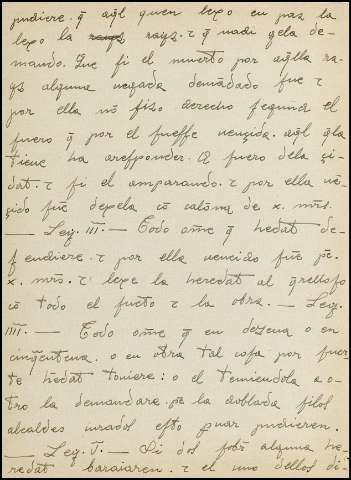 pudiere. q̃ aq̃l quien lexo en paz la
lexo la rayz. τ q̃ nadi gela de-
mando. Que si el muerto por aq̃lla ra-
yz alguna uegada demãdado fue τ
por ella nõ fizo derecho segund el
fuero q̃ por el fuesse uençida. aq̃l q̃la
tiene ha aresponder. A fuero dela çi-
dat. τ si el amparando. τ por ella uẽ-
çido fuẽ dexela cõ calõna de x. mr̃s.
— Ley. III. — Todo om̃e q̃ hedat de-
fendiere. τ por ella uencido fuẽ p̃e.
x. mr̃s. τ lexe la heredat al q̃relloso
cõ todo el fructo τ la obra. — Ley.
IIII. — Todo om̃e q̃ en dezena o en
cinq̃entena. o en otra tal cosa por suer-
te hedat touiere: o el temiendola a o-
tro la demandare. p̃e la doblada silos
alcaldes iurados esto puar pudieren.
— Ley. V. — Si dos sobr̃ alguna he-
redat baraiaren. τ el uno dellos di-